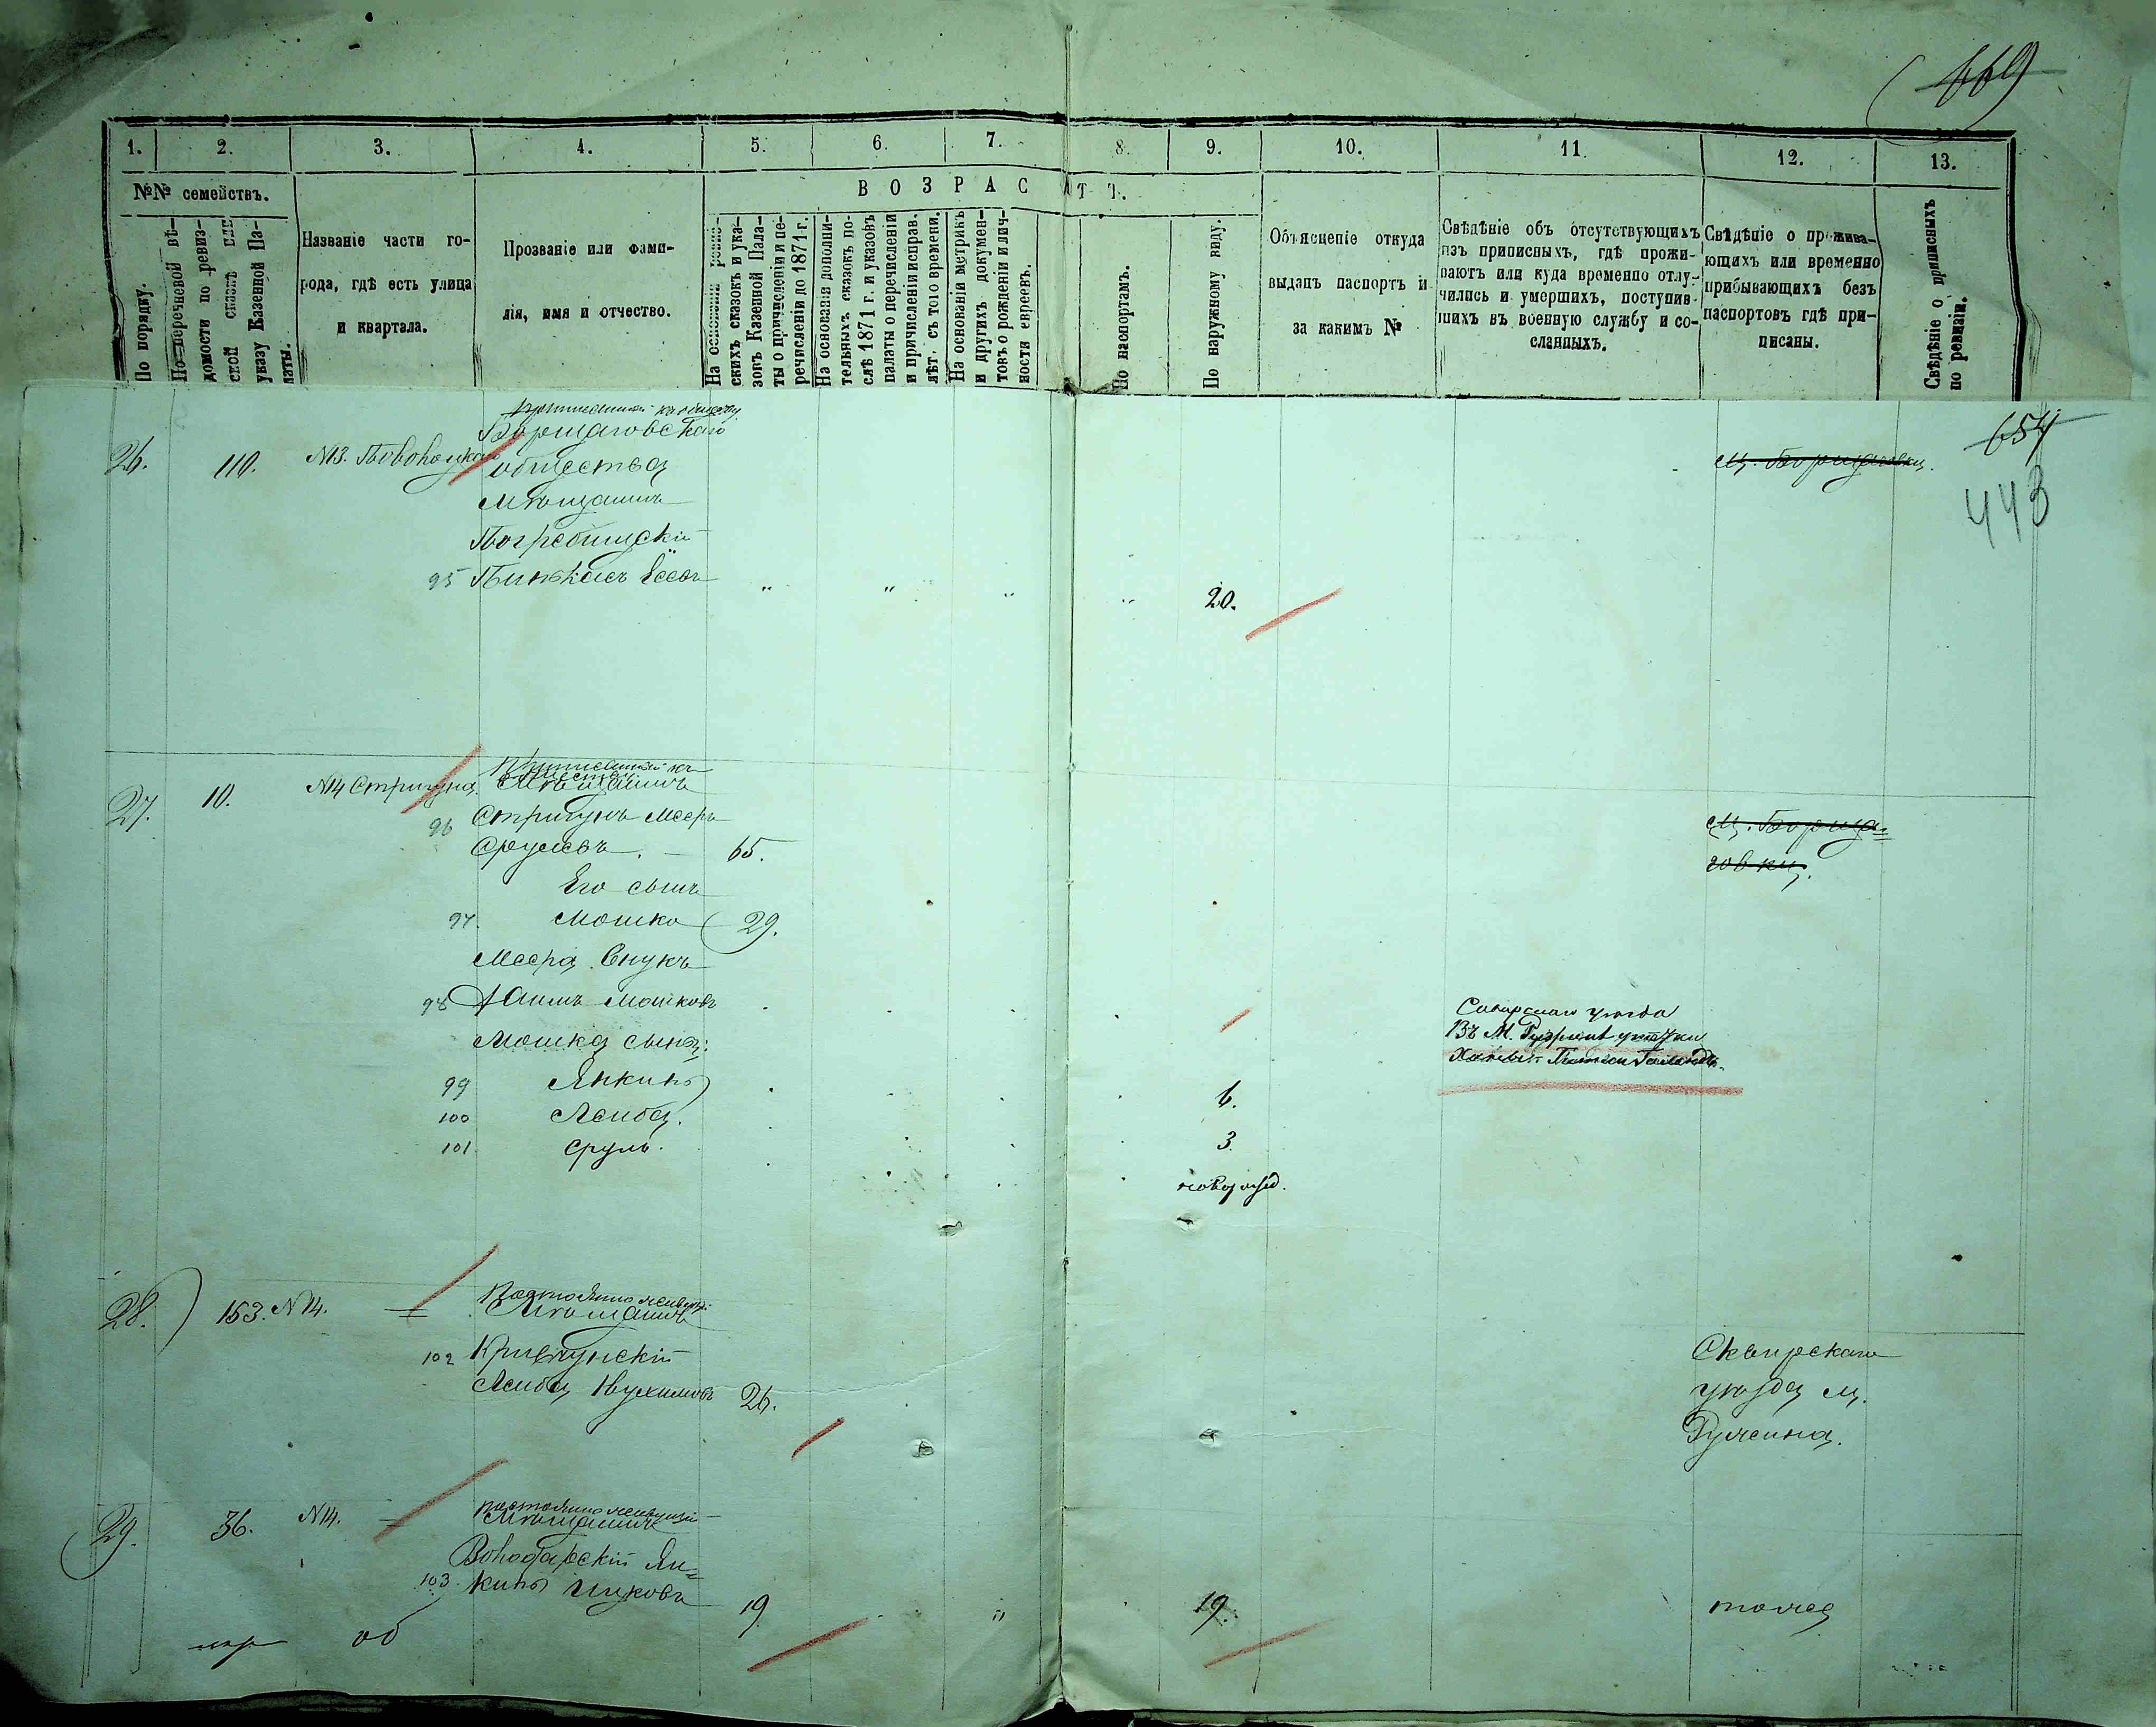 669
1. 2. 3. 4. 5. 6. 7. 8. 9. 10. 11. 12. 13.
№№ семействъ.
ВОЗРАСТЪ.
По порядку.
По перечневой вѣ-
домости по ревиз-
ской сказкѣ или
указу Казенной Па-
латы.
Названіе части го-
рода, гдѣ есть улица
и квартала.
Прозваніе или фами-
лія, имя и отчество.
На основаніи ревиз-
скихъ сказокъ и ука-
зовъ Казенной Пала-
ты о причисленіи и пе-
речисленіи до 1871 г.
На основаніи дополни-
тельныхъ сказокъ по-
слѣ 1871 г. и указовъ
палаты о перечисленіи
и причисленіи исправ.
лѣт. съ того времени.
На основаніи метрикъ
и другихъ докумен-
товъ о рожденіи и лич-
ности евреевъ.
По паспортамъ.
По наружному виду.
Объясненіе откуда
выданъ паспортъ и
за какимъ №
Свѣдѣніе объ отсутствующихъ
изъ приписныхъ, гдѣ прожи-
ваютъ или куда временно отлу-
чились и умершихъ, поступив-
шихъ въ военную службу и со-
сланныхъ.
Свѣдѣніе о прожива-
ющихъ или временно
прибывающихъ безъ
паспортовъ гдѣ при-
писаны.
Свѣдѣніе о приписныхъ
по ревизіи.
654
443
Борщаговскаго
26. 110. №13. общества м. Борщаговки.
Мѣщанинъ
Погребищскій
95 Пинькасъ 20.
27. 10. №14 Стригуна. Мѣщанинъ
96 Стригунъ Мееръ м. Борща=
Срулевъ. 65. говки.
Его сынъ
97. Мошко 29.
Меера Внукъ
98 Хаимъ Мошковъ
Мошка сыны: Въ М.
99 Янкиль 6.
100 Лейба. 3.
101. Сруль. новорожд.
28. 153. №14. Мѣщанинъ
102 Сквирскаго
Лейба Нухимовъ 26. уѣзда м.
Ружина.
29. 36. №14. постоянно живущій
Мѣщанинъ
Володарскій Ян=
103. киль Ицковъ 19. 19. тоже
об